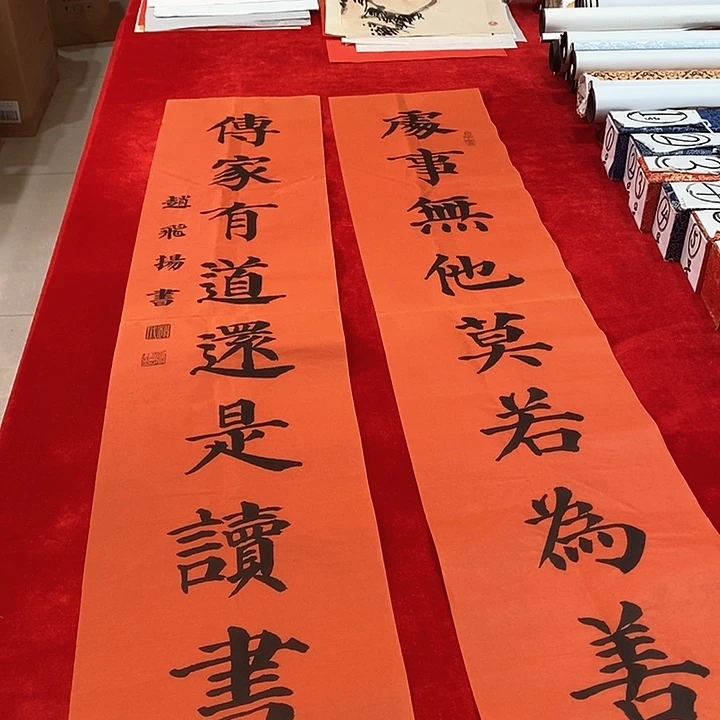 處事無他莫若為善
傳家有道還是讀書
趙飛揚書
①
②
③
④
⑤